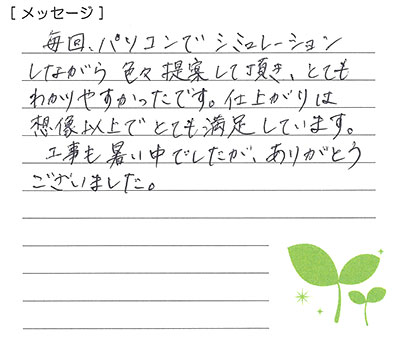 [メッセージ]
毎回、パソコンでシミュレーション
しながら色々提案して頂き、とても
わかりやすかったです。仕上がりは
想像以上でとても満足しています。
工事も暑い中でしたが、ありがとう
ございました。